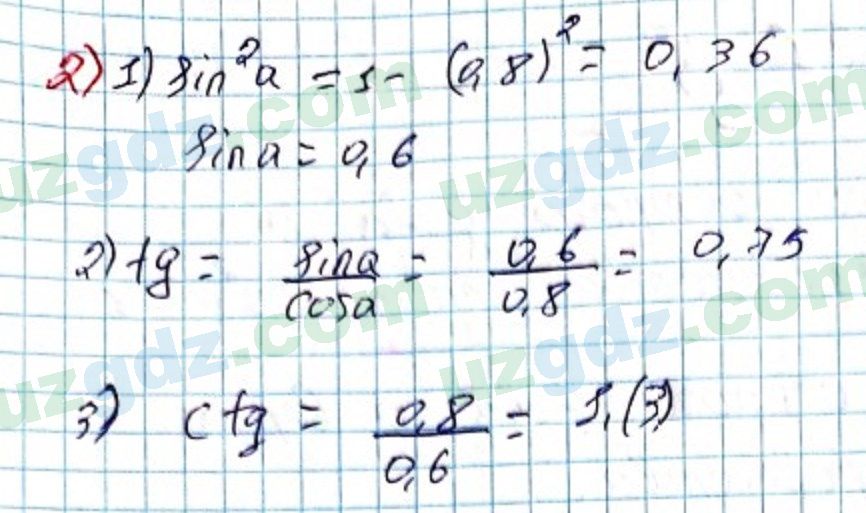 2) 1) sin²a = 1 - (0,8)² = 0,36
sin a = 0,6
2) tg = sina/cosa = 0,6/0,8 = 0,75
3) ctg = 0,8/0,6 = 1,(3)
uzgdz.com
uzgdz.com
uzgdz.com
uzgdz.com